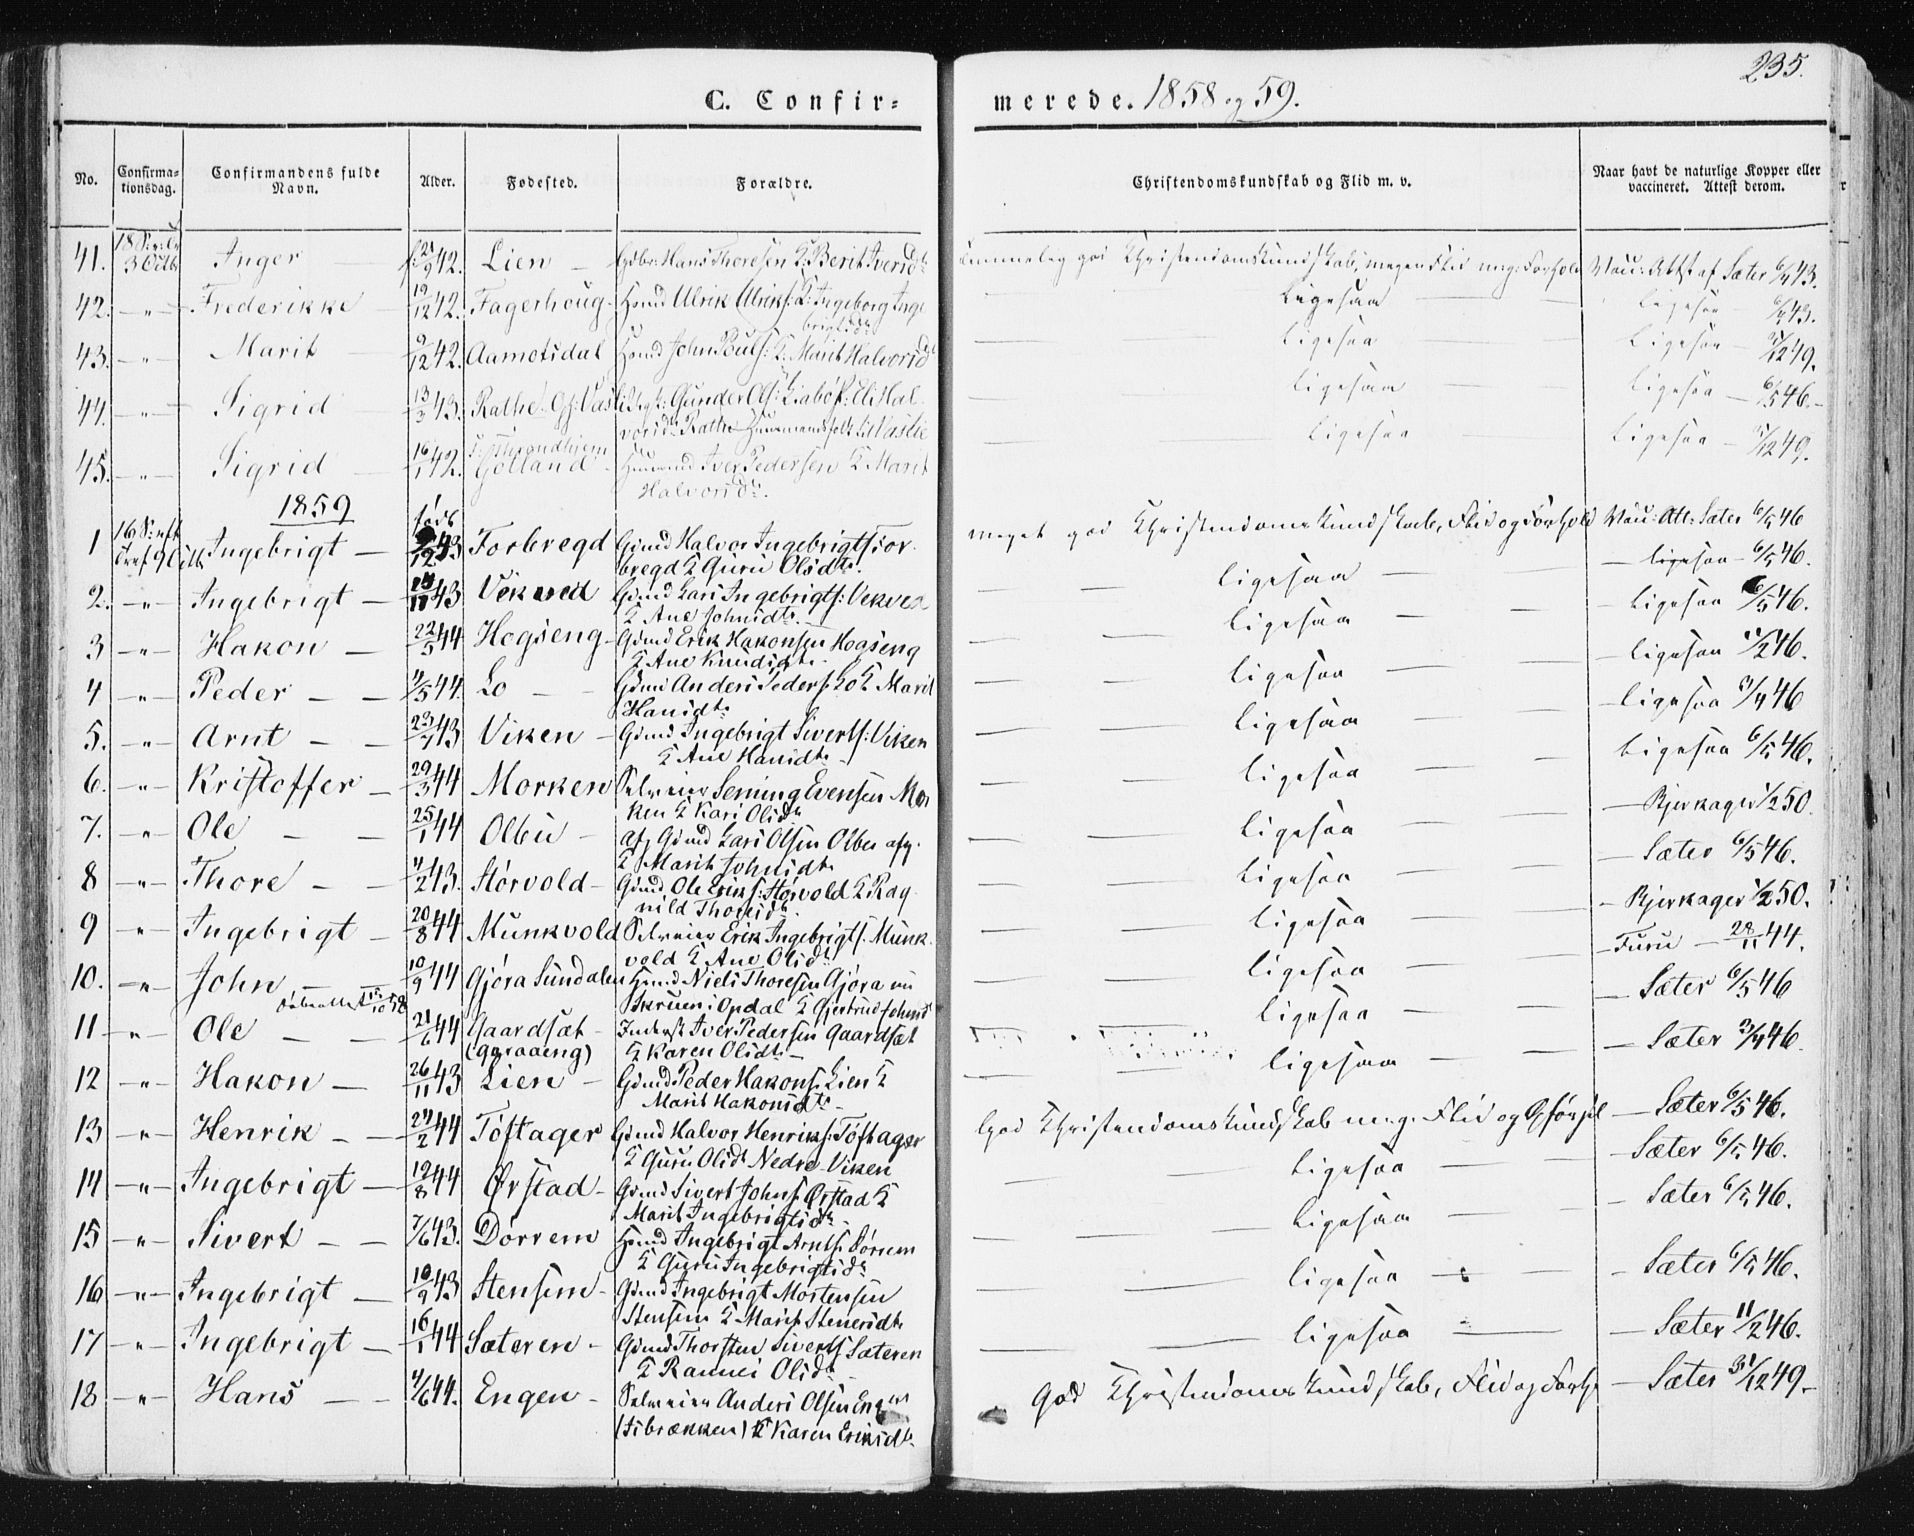 235.
C. Confir=
merede. 1858 og 59.
No.
Confirma-
tionsdag.
Confirmandens fulde
Navn.
Alder.
Fødested.
Forældre.
Christendomskundskab og Flid m. v.
Naar havt de naturlige Kopper eller
vaccineret. Attest derom.
41. Inger — 21/9 42. Lien — Hans Thoresen & Berit Iversdt. god Christendomskundskab, megen Flid Sæter 6/5 43.
42. — " — Frederikke — 19/12 42. Fagerhoug — Hsmd Ulrik Ulriks: & Ingeborg Inge
brigtsdt. — Ligesaa — ligesaa — 43.
43. — " Marit — 9/12 42. Aamotsdal Hsmd John Pouls: & Marit Halvorsdt — ligesaa — ligesaa — 49.
44. — " — Sigrid — 13/3 43. Rathe Gunder Ols: & Eli Hal-
vorsdt. Rathe Huusmandsfolk — ligesaa — ligesaa — 6/5 46.
45. — " — Sigrid — 16/1 42. Throndhjem
Gotland — Iver Pedersen & Marit
Halvorsdt. — ligesaa — ligesaa — 49.
1859
født
1 Ingebrigt — 12 43 Forbregd Gmd Halvor Ingebrigts: For-
bregd & Guru Olsdt. meget god Christendomskundskab, Flid og Forhold Vac: Att: Sæter 6/5 46
2. — " — Ingebrigt — 43 Vekved Gmd Lars Ingebrigts: Vekved
& Ane Johnsdt. — ligesaa — ligesaa — 6/5 46.
3 — " — Hakon — 22/5 44 Hogseng — Gmd Erik Hakonsen Hogseng
& Ane Knudsdt. — ligesaa — ligesaa 6/5 46.
4 — " — Peder — 4/5 44. Lo — Gmd Anders Peders: Lo & Marit
Hansdt. — ligesaa — ligesaa 46.
5. — " — Arnt — 23/7 43 Viken — Gmd Ingebrigt Siverts: Viken
& Ane Hansdt. — ligesaa — ligesaa 46
6. — " — Kristoffer — 29/3 44 Morken Selveier Seming Evensen Mor
ken & Kari Olsdt. — ligesaa — ligesaa 6/5 46.
7. — " Ole — 25/1 44 Olbu — Gmd Lars Olsen Olbu
& Marit Johnsdt. — ligesaa — Bjerkager 50.
8 — " — Thore — 4/2 43. Størvold — Gmd Ole Eriks: Størvold & Rag
nild Thoresdt. — ligesaa — Sæter 6/5 46.
9 — " Ingebrigt — 20/8 44 Munkvold Selveier Erik Ingebrigts: Munk-
vold & Ane Olsdt. — ligesaa — Bjerkager 50.
10. — " John — 10/9 44 Gjøra Sundalen Hsmd Niels Thoresen Gjøra nu
Skruen i Opdal & Gjertrud Johnsd — ligesaa — Furu — 28/11 44.
11 — " — Ole — 21/6 44 Gaardsæt —
(Ggraaeng) Iver Pedersen Gaardsæt
& Karen Olsdt. — ligesaa — Sæter 6/5 46
12 — " — Hakon — 26/11 43 Lien — Gmd Peder Hakons: Lien &
Marit Hakonsdt. — ligesaa — Sæter 46.
13 — " — Henrik — 24/2 44 Toftager Gmd Halvor Henriks: Toftager
& Guru Olsdt. Nedre-Viken God Christendomskundskab Flid og — Sæter 6/5 46.
14 — " — Ingebrigt — 12/8 44 Ørstad — Gmd Sivert Johns: Ørstad &
Marit Ingebrigtsdt. — ligesaa — Sæter 6/5 46.
15 — " — Sivert — 7/6 43. Dorrem Hsmd Ingebrigt Arnts: Dorrem
& Guru Ingebrigtsdt. — ligesaa — Sæter 6/5 46.
16 — " — Ingebrigt — 10/9 43 Stensem — Gmd Ingebrigt Mortensen
Stensem & Marit Stenersdt. — ligesaa — Sæter 6/5 46.
17 — " — Ingebrigt — 16/1 44 Sæteren — Gmd Thorsten Siverts: Sæteren
& Rannei Olsdt. — ligesaa — Sæter 11/2 46.
18 — " — Hans — 4/6 44. Engen — Selveier Anders Olsen Engen
& Karen Eriksdt. God Christendomskundskab, Flid og — Sæter 31/12 49.